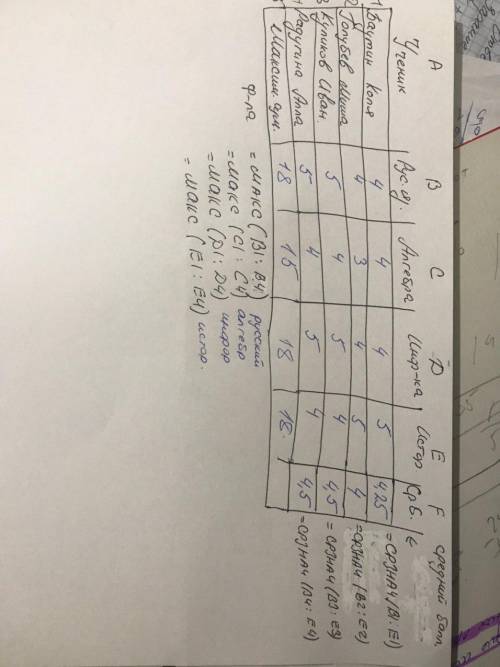 A B C D E F средний балл
Ученик Рус.яз. Алгебра Инф-ка Истор Ср б.
1 Ваутин Коля 4 4 4 5 4,25 =СРЗНАЧ(B1:E1)
2 Голубев Миша 4 3 4 5 4 =СРЗНАЧ(B2:E2)
3 Куликов Иван 5 4 5 4 4,5 =СРЗНАЧ(B3:E3)
4 Радугина Алла 5 4 5 4 4,5 =СРЗНАЧ(B4:E4)
5 Максим. 18 15 18 18
ф-ла =МАКС(B1:B4) русский
=МАКС(C1:C4) алгебр
=МАКС(D1:D4) инфор
=МАКС(E1:E4) истор.